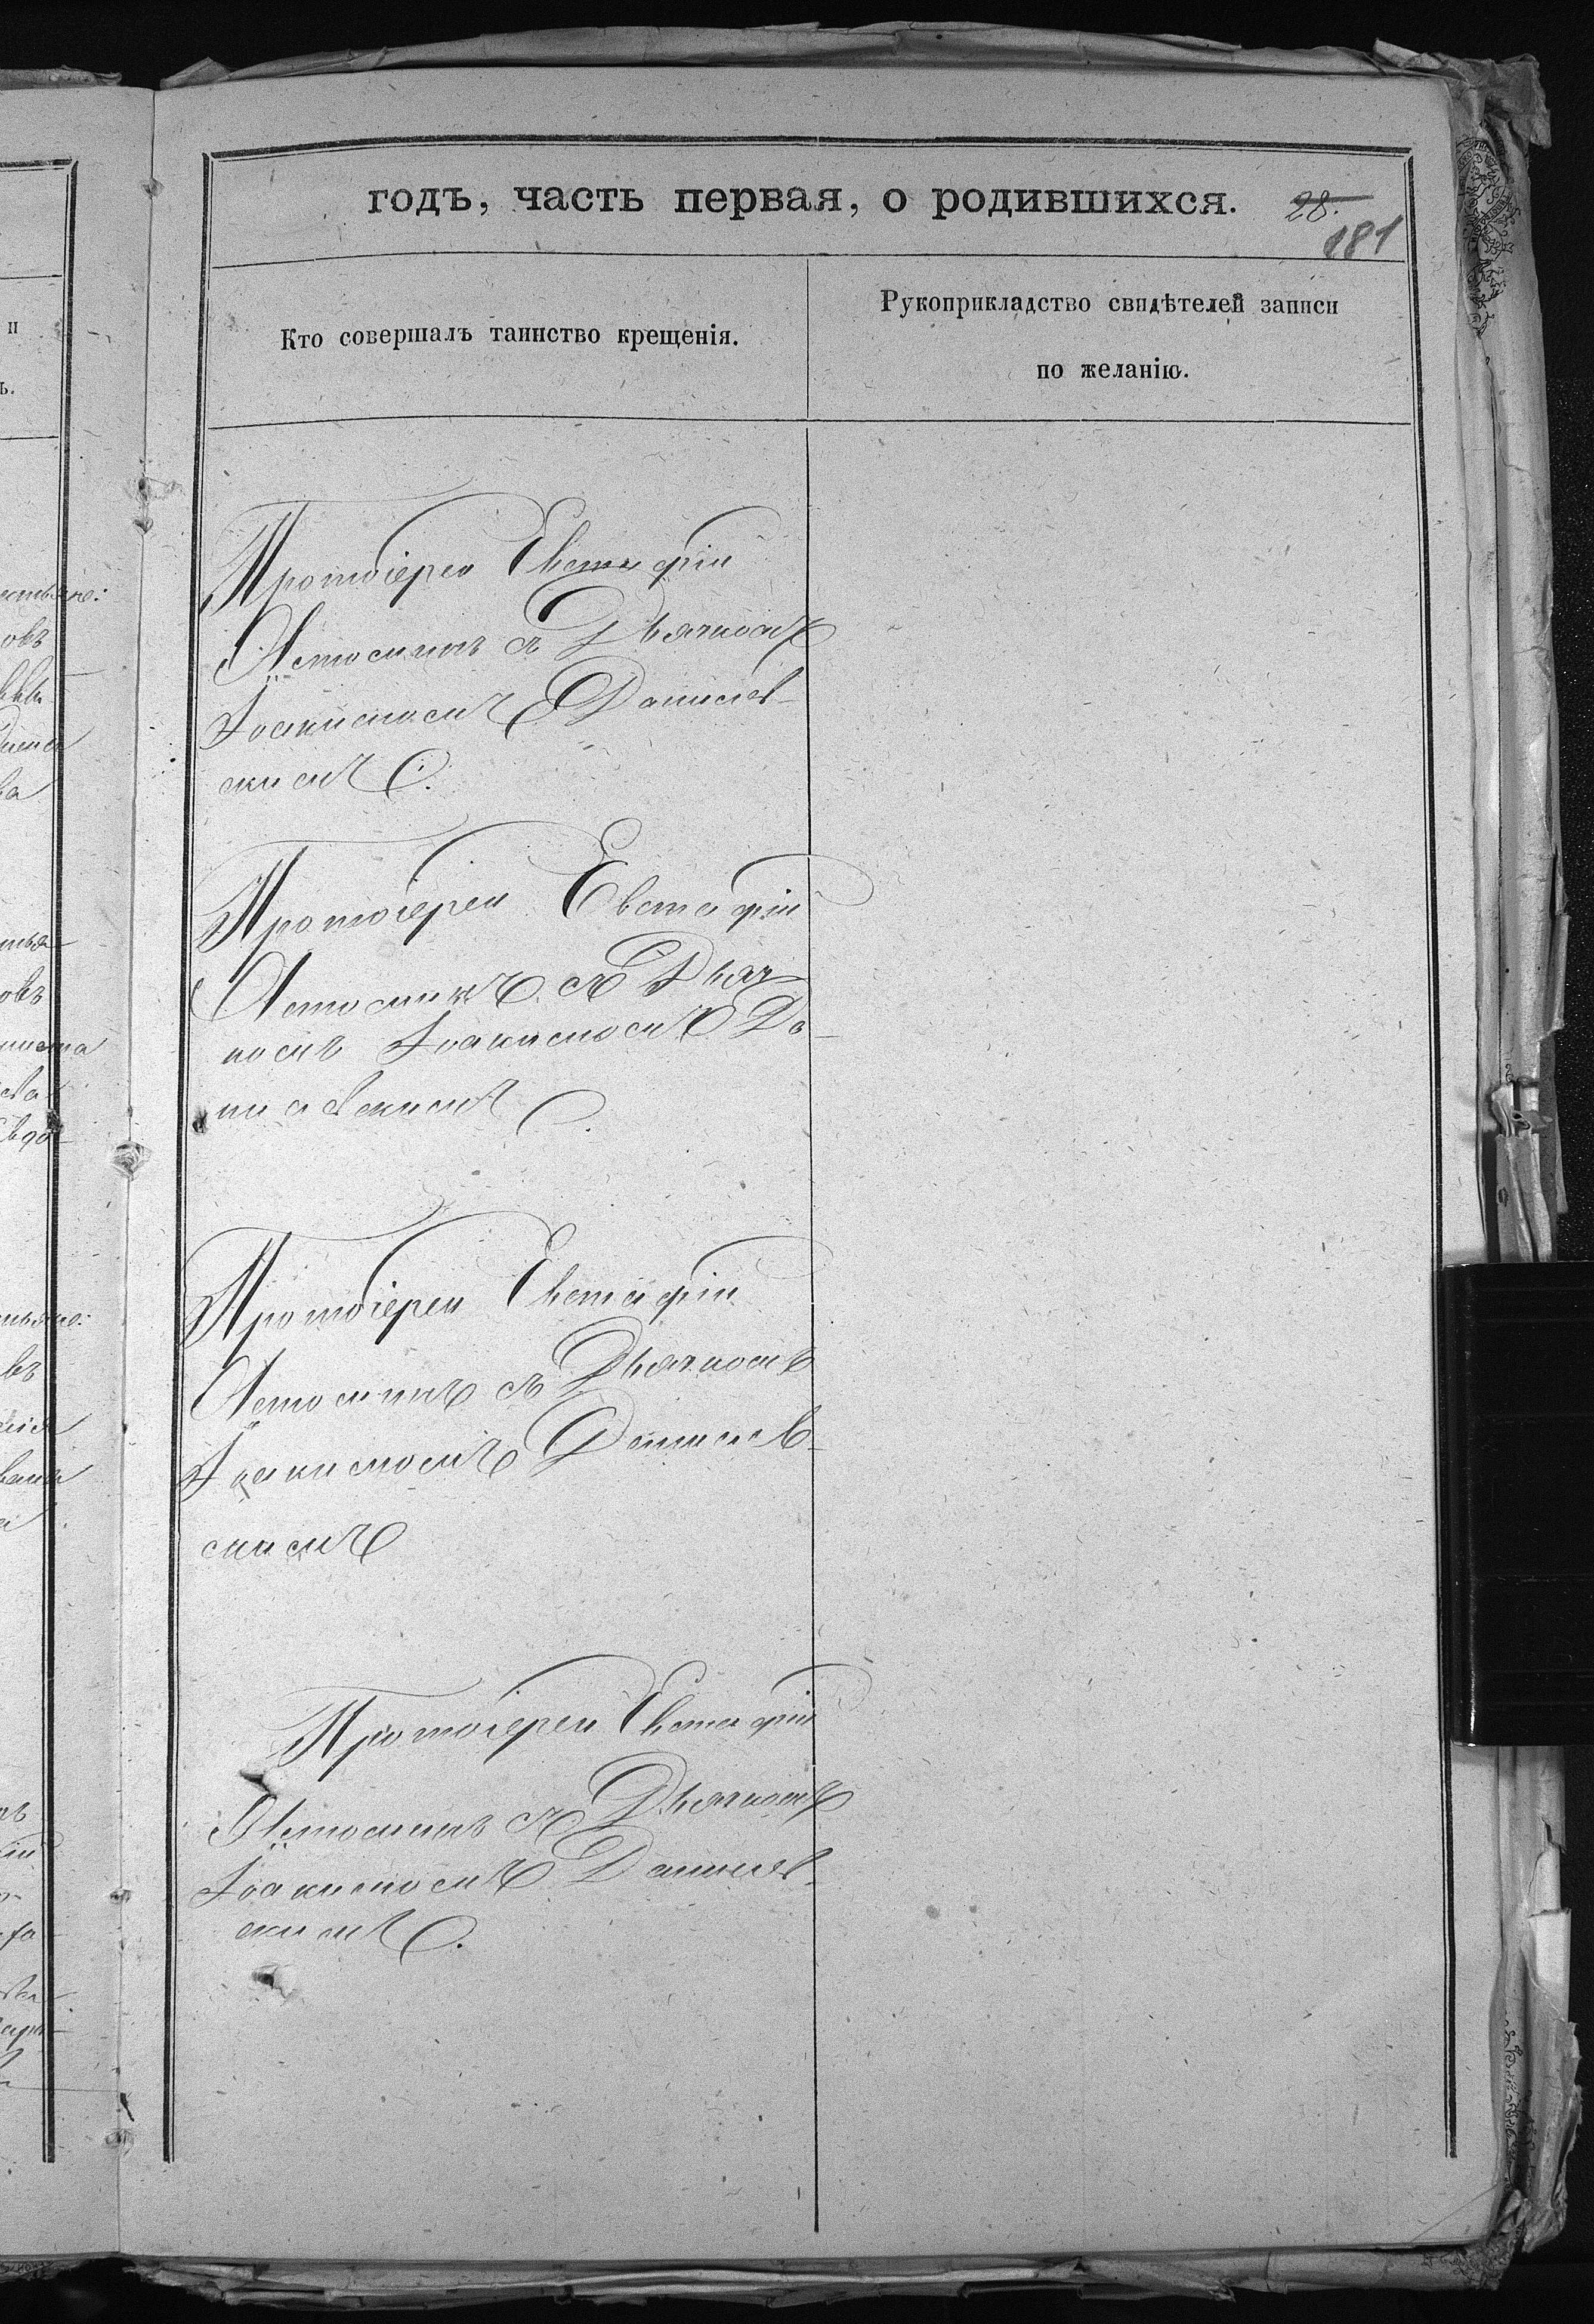 годъ, часть первая, о родившихся.
28.
181
Кто совершалъ таинство крещенія.
Рукоприкладство свидѣтелей записи
по желанію.
Протоіерей Евстафій
съ Дьячкомъ
Іоакимомъ Данилев-
скимъ.
Протоіерей Евстафій
съ Дьяч
комъ Іоакимомъ Да-
нилевскимъ.
Протоіерей Евстафій
съ Дьячкомъ
Іоакимомъ Данилев-
скимъ
Протоіерей Евстафій
съ Дьячкомъ
Іоакимомъ Данилев-
скимъ.